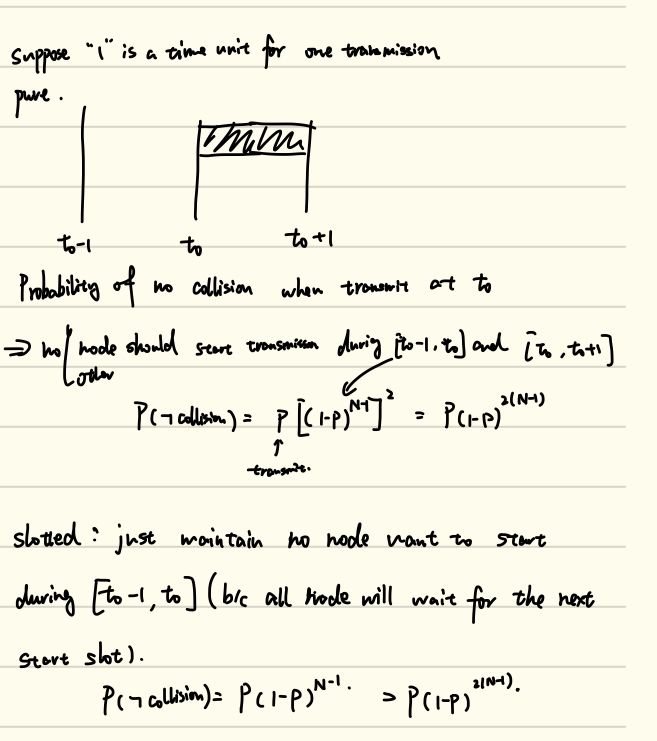 Suppose "1" is a time unit for one transmission
pure.
t₀-1 t₀ t₀+1
Probability of no collision when transmit at t₀
⇒ no other node should start transmission during [t₀-1, t₀] and [t₀, t₀+1]
P(¬collision) = P[(1-P)^{N-1}]^2 = P(1-P)^{2(N-1)}
↑
transmit.
slotted: just maintain no node want to start
during [t₀-1, t₀] (b/c all node will wait for the next
start slot).
P(¬collision) = P(1-P)^{N-1}. > P(1-P)^{2(N-1)}.